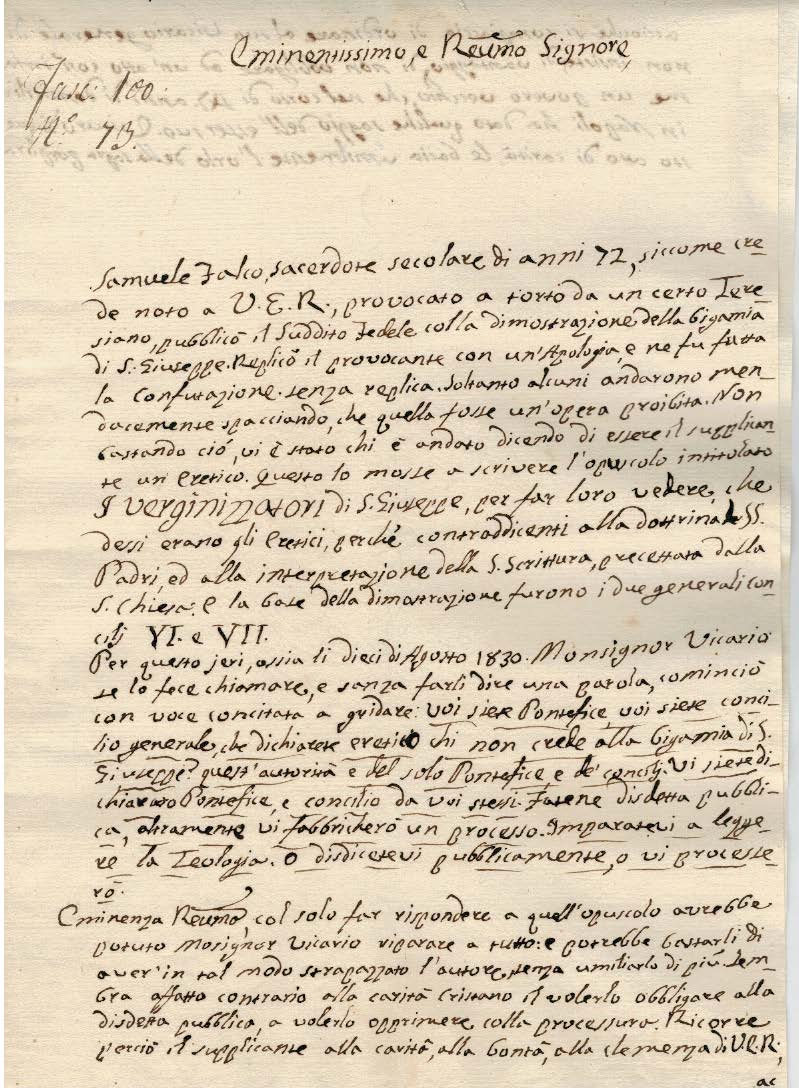 Eminentissimo, e Reũmo Signore,
Fasc: 100:
N.º 73.
Samuele Falco, sacerdote secolare di anni 72, siccome cre-
de noto a V. E. R., provocato a torto da un certo Tere-
siano, pubblicò il Suddito Fedele colla dimostrazione della bigamia
di S. Giuseppe. Replicò il provocante con un'Apologia, e ne fu fatta
la confutazione senza replica. Soltanto alcuni andarono men-
dacemente spacciando, che quella fosse un'opera proibita. Non
bastando ciò, vi è stato chi è andato dicendo di essere il supplican-
te un Eretico. Questo lo mosse a scrivere l'opuscolo intitolato
I verginizzatori di S. Giuseppe, per far loro vedere, che
dessi erano gli Eretici, perchè contraddicenti alla dottrina de SS.
Padri, ed alla interpretazione della S. Scrittura, precettata dalla
S. Chiesa: e la base della dimostrazione furono i due generali con-
cilj VI. e VII.
Per questo jeri, ossia li dieci di Agosto 1830. Monsignor Vicario
se lo fece chiamare, e sanza farli dire una parola, cominciò
con voce concitata a gridare: voi siete Pontefice, voi siete conci-
lio generale, che dichiarete eretico chi non crede alla bigamia di S.
Giuseppe? quest'autorità è del solo Pontefice e de' concilj. Vi siete di-
chiarato Pontefice, e concilio da voi stessi. Fatene disdetta pubbli-
ca, altramente vi fabbricherò un processo. Imparatevi a legge-
re la Teologia. O disdicetevi pubblicamente, o vi processe-
rò.
Eminenza Reũma, col solo far rispondere a quell'opuscolo avrebbe
potuto Mosignor Vicario riparare a tutto: e potrebbe bastarli di
aver'in tal modo strapazzato l'autore, senza umiliarlo di più. Sem-
bra affatto contrario alla carità cristana il volerlo obbligare alla
disdetta pubblica, a volerlo opprimere colla processura. Ricorre
perciò il supplicante alla carità, alla bontà, alla clemenza di V. E. R;
ac